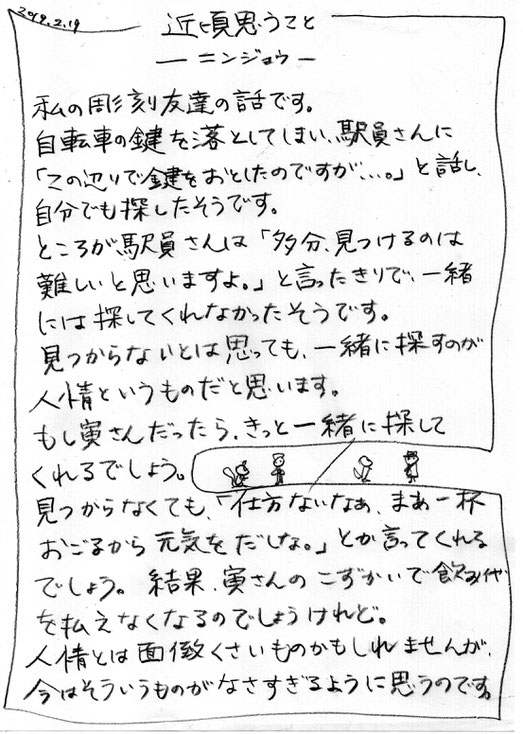 2019.2.19
近頃思うこと
ーニンジョウー
私の彫刻友達の話です。
自転車の鍵を落としてしまい、駅員さんに
「この辺りで鍵をおとしたのですが…。」と話し、
自分でも探したそうです。
ところが駅員さんは「多分、見つけるのは
難しいと思いますよ。」と言ったきりで、一緒
には探してくれなかったそうです。
見つからないとは思っても、一緒に探すのが
人情というものだと思います。
もし寅さんだったら、きっと一緒に探して
くれるでしょう。
見つからなくても、「仕方ないなぁ、まあ一杯
おごるから元気をだしな。」とか言ってくれる
でしょう。結果、寅さんのこずかいで飲み代
を払えなくなるのでしょうけれど。
人情とは面倒くさいものかもしれませんが、
今はそういうものがなさすぎるように思うのです。